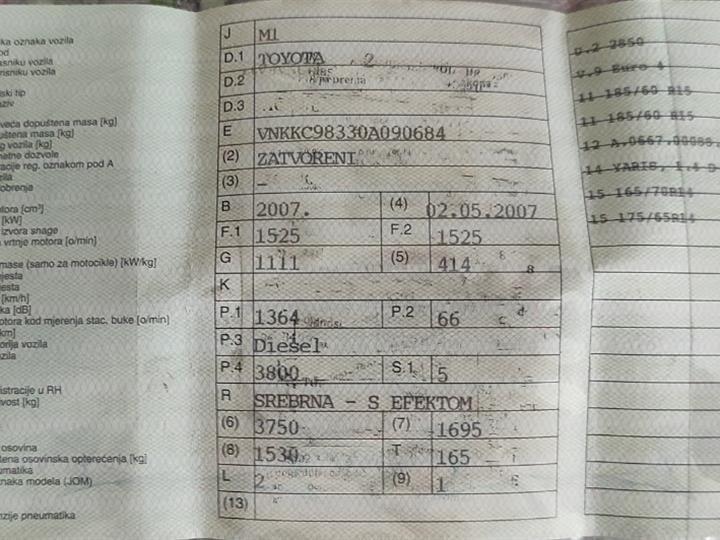 ka oznaka vozila
od
asniku vozila
risniku vozila
ski tip
aziv
veća dopuštena masa [kg]
uštena masa [kg]
g vozila [kg]
atne dozvole
acije reg. oznakom pod A
zila
obrenja
tora [cm³]
[kW]
izvora snage
vrtnje motora [o/min]
mase (samo za motocikle) [kW/kg]
jesta
esta
[km/h]
ka [dB]
otora kod mjerenja stac. buke [o/min]
km]
orija vozila
zila
istracije u RH
ivost [kg]
osovina
tena osovinska opterećenja [kg]
umatika
naka modela (JOM)
nzije pneumatika
J M1
D.1 TOYOTA 2
D.2
D.3
E VNKKC98330A090684
(2) ZATVORENI
(3) -
B 2007. (4) 02.05.2007
F.1 1525 F.2 1525
G 1111 (5) 414
K
P.1 1364 P.2 66
P.3 Diesel
P.4 3800 S.1 5
R SREBRNA - S EFEKTOM
(6) 3750 (7) 1695
(8) 1530 T 165
L 2 (9) 1
(13)
0.2 2850
V.9 Euro 4
11 185/60 R15
11 185/60 R15
12 A.0667.00085.
14 YARIS, 1.4 D
15 165/70R14
15 175/65R14